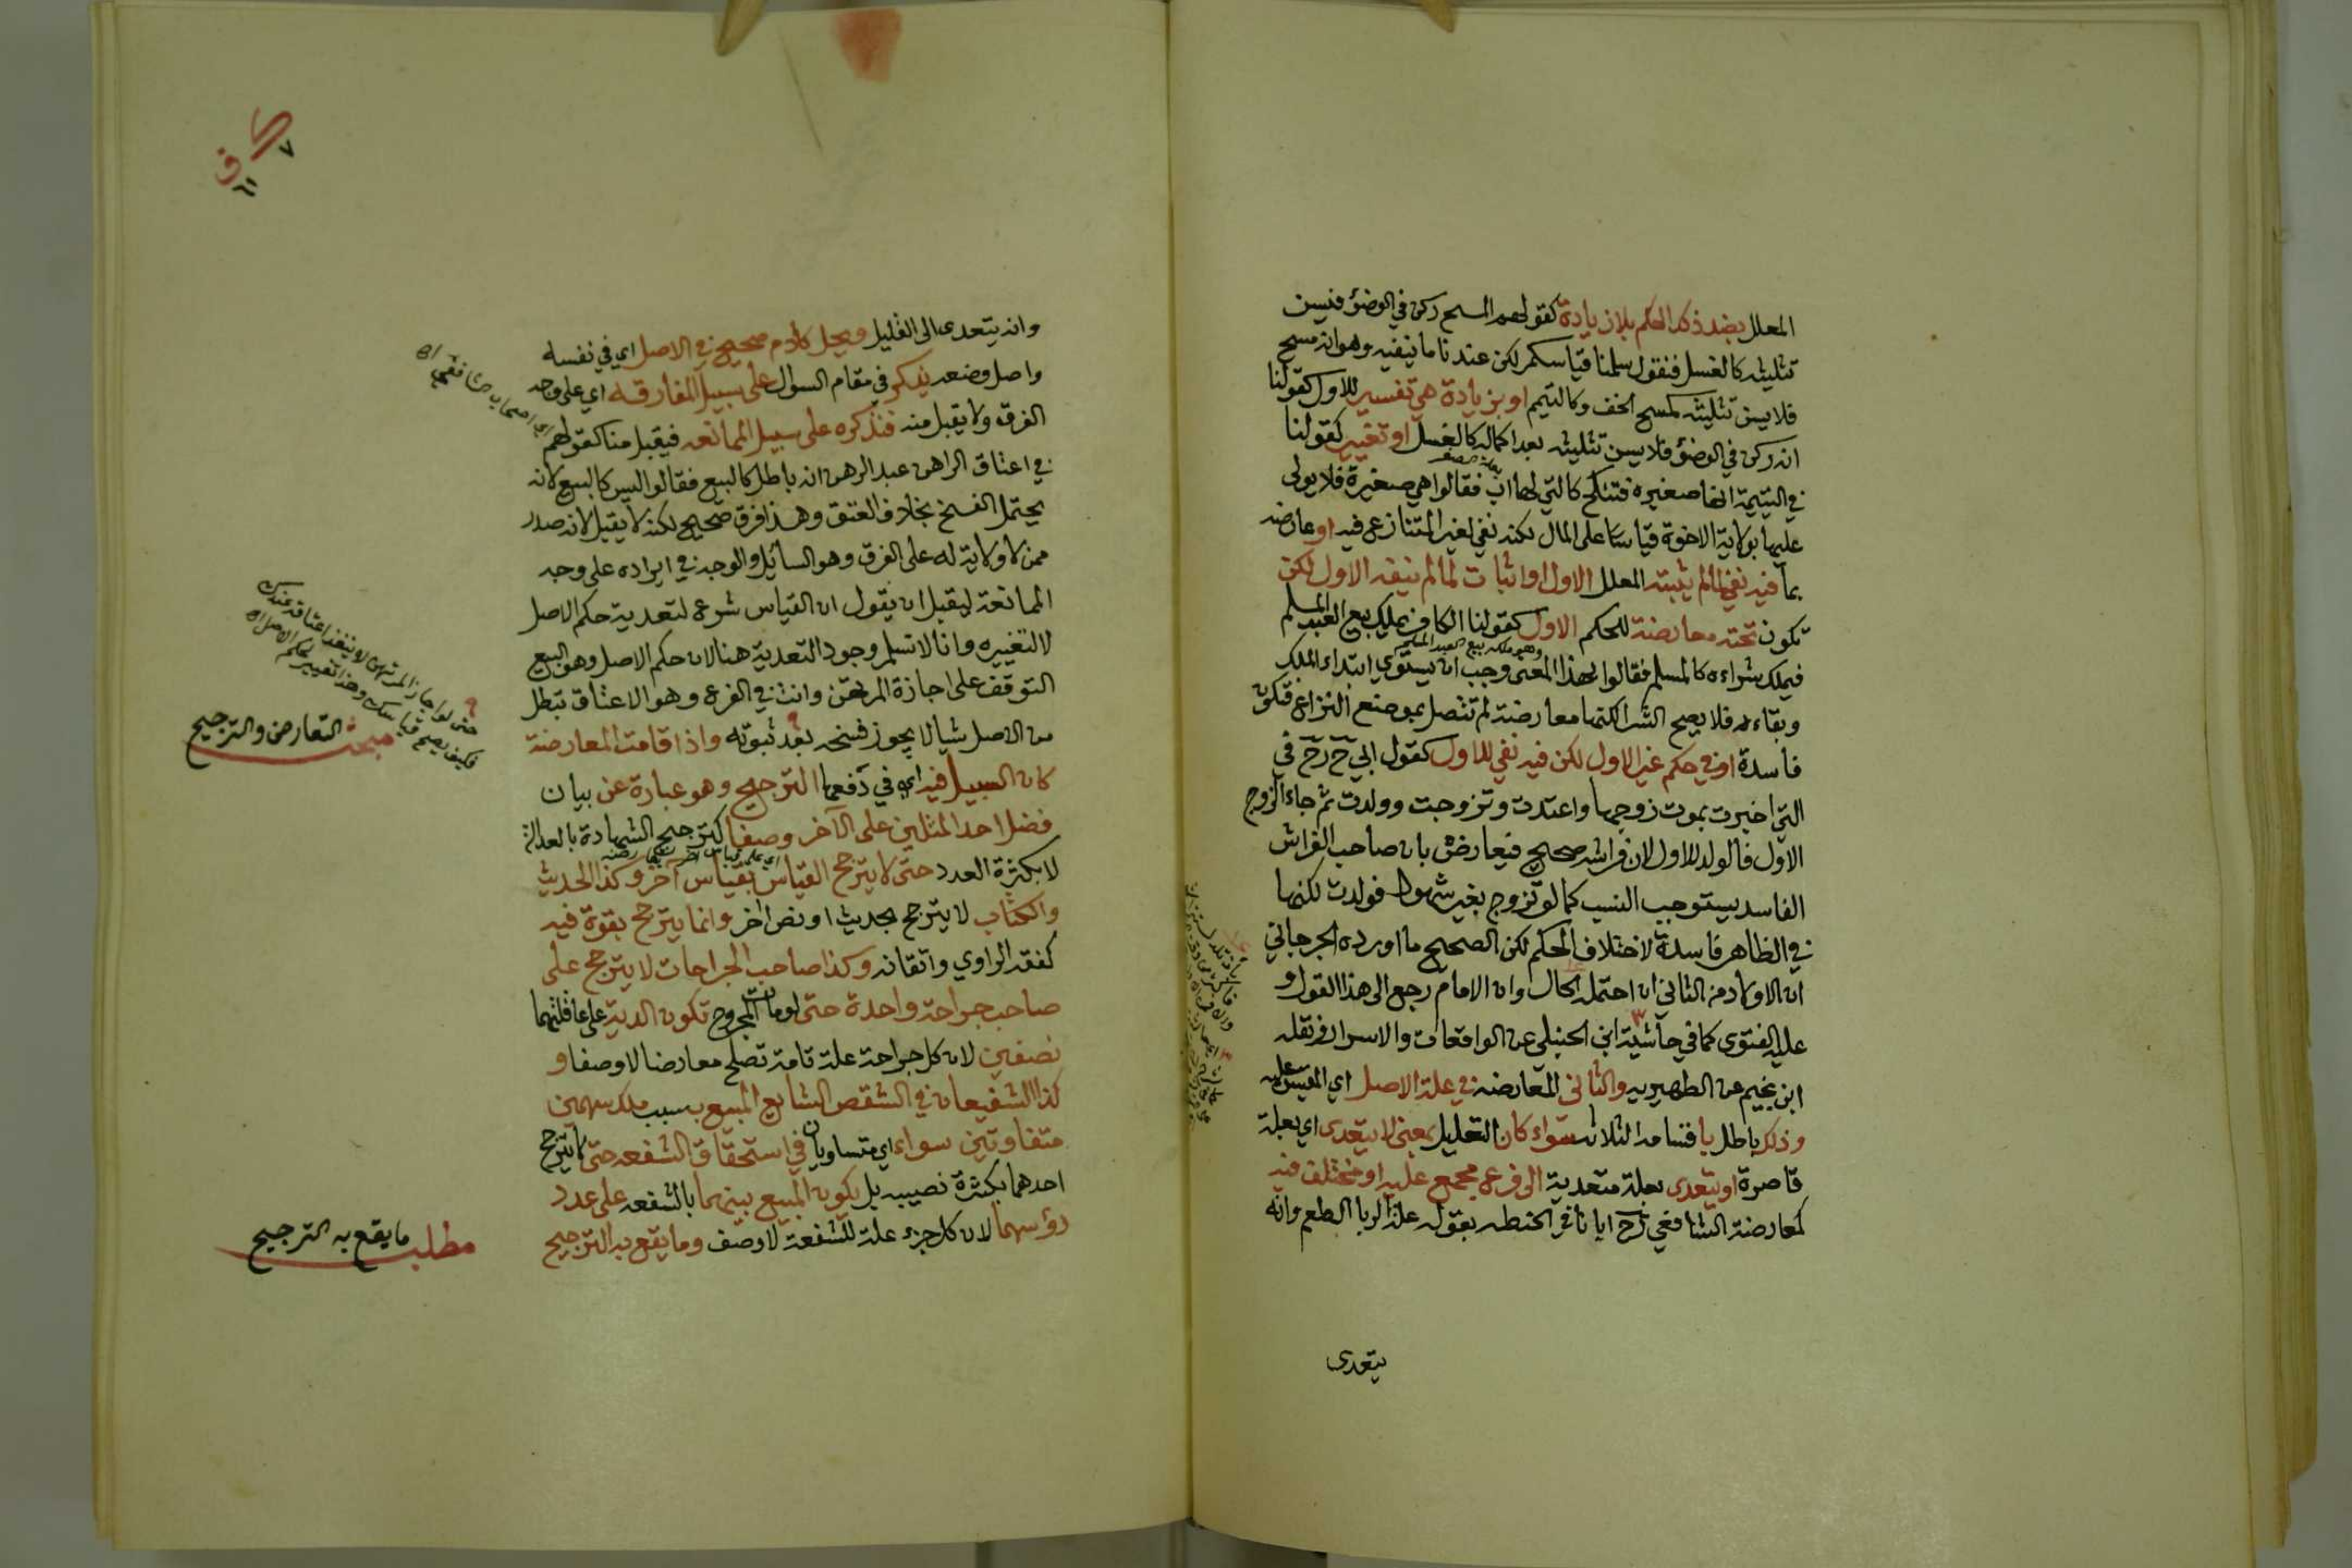 المعلل بضد ذكر الحكم بلا زيادة كقولهم المسح ركن في الوضؤ فيسن
تثليثه كالغسل فنقول سلمنا قياسكم لكن عندنا ما ينفيه وهو انه مسح
فلا يسن تثليثه كمسح الخف وكالتيمم او بزيادة هي تفسير للاول كقولنا
انه ركن في الوضؤ فلا يسن تثليثه بعد اكماله كالغسل او تغيير كقولنا
في اليتيمة انها صغيره فتنكح كالتي لها اب فقالوا هي صغيرة فلا يولى
عليها بولاية الاخوة قياسا على المال لكنه نفي لغير المتنازع فيه او عارضه
بما فيه نفي لما لم يثبته المعلل الاول او اثبات لما لم ينفه الاول لكن
تكون تحته معارضة للحكم الاول كقولنا الكافر يملك بيع العبد المسلم
وهو ملكه بيع العبد المسلم
فيملك شراءه كالمسلم فقالوا لهذا المعنى وجب ان يستوي ابتداء الملك
وبقاءه فلا يصح الشرا لكنها معارضة لم تتصل بموضع النزاع فتكون
فاسدة او في حكم غير الاول لكن فيه نفي للاول كقول ابي ح رح في
التي اخبرت بموت زوجها واعتدت وتزوجت وولدت ثم جاء الزوج
الاول فالولد للاول لان فراشه صحيح فيعارض بان صاحب الفراش
الفاسد يستوجب النسب كما لو تزوج بغير شهود فولدت لكنها
في الظاهر فاسدة لاختلاف الحكم لكن الصحيح ما اورده الجرجاني
ان الاولاد من الثاني ان احتمله الحال وان الامام رجع الى هذا القول و
عليه الفتوى كما في حاشية ابن الحنبلي عن الواقعات والاسرار ونقله
ابن نجيم عن الظهيريه والثاني المعارضه في علة الاصل اي المقيس عليه
وذلك باطل باقسامه الثلاث سواء كان التعليل بمعنى لا يتعدى اي بعلة
قاصرة او يتعدى بعلة متعدية الى فرع مجمع عليه او مختلف فيه
كمعارضة الشافعي رح ايانا في الحنطه بقوله علة الربا الطعم وانه
يتعدى
وانه يتعدى الى القليل وكل كلام صحيح في الاصل اي في نفسه
واصل وضعه يذكر في مقام السؤال على سبيل المفارقه اي على وجه
الفرق ولا يقبل منه فنذكره على سبيل الممانعه فيقبل منا كقولهم
في اعتاق الراهن عبد الرهن انه باطل كالبيع فقالوا ليس كالبيع لانه
يحتمل الفسخ بخلاف العتق وهذا فرق صحيح لكنه لا يقبل لانه صدر
ممن لا ولاية له على الفرق وهو السائل والوجه في ايراده على وجه
الممانعة ليقبل ان يقول ان القياس شرع لتعدية حكم الاصل
لا لتغييره وانا لا نسلم وجود التعدية هنا لان حكم الاصل وهو البيع
التوقف على اجازة المرتهن وانت في الفرع وهو الاعتاق تبطل
من الاصل شيا لا يجوز فسخه بعد ثبوته واذا قامت المعارضة
كان السبيل فيه اي في دفعها الترجيح وهو عبارة عن بيان
فضل احد المثلين على الآخر وصفا كترجيح الشهادة بالعدالة
لا بكثرة العدد حتى لا يترجح القياس بقياس آخر وكذا الحديث
والكتاب لا يترجح بحديث او نص اخر وانما يترجح بقوة فيه
كفقه الراوي واتقانه وكذا صاحب الجراحات لا يترجح على
صاحب جراحة واحدة حتى لو مات المجروح تكون الدية على عاقلتهما
نصفين لان كل جراحة علة تامة تصلح معارضا لا وصفا و
كذا الشفيعان في الشقص الشايع المبيع بسبب ملك سهمين
متفاوتين سواء اي متساويان في استحقاق الشفعه حتى لا يترجح
احدهما بكثرة نصيبه بل يكون المبيع بينهما بالشفعه على عدد
رؤسهما لان كل جزء علة للشفعة لا وصف وما يقع به الترجيح
حتى لو اجاز المرتهن لا ينفذ اعتاقه عندك
فكيف يصح قياسك وهذا تغيير لحكم الاصل اه
مبحث التعارض والترجيح
مطلب ما يقع به الترجيح